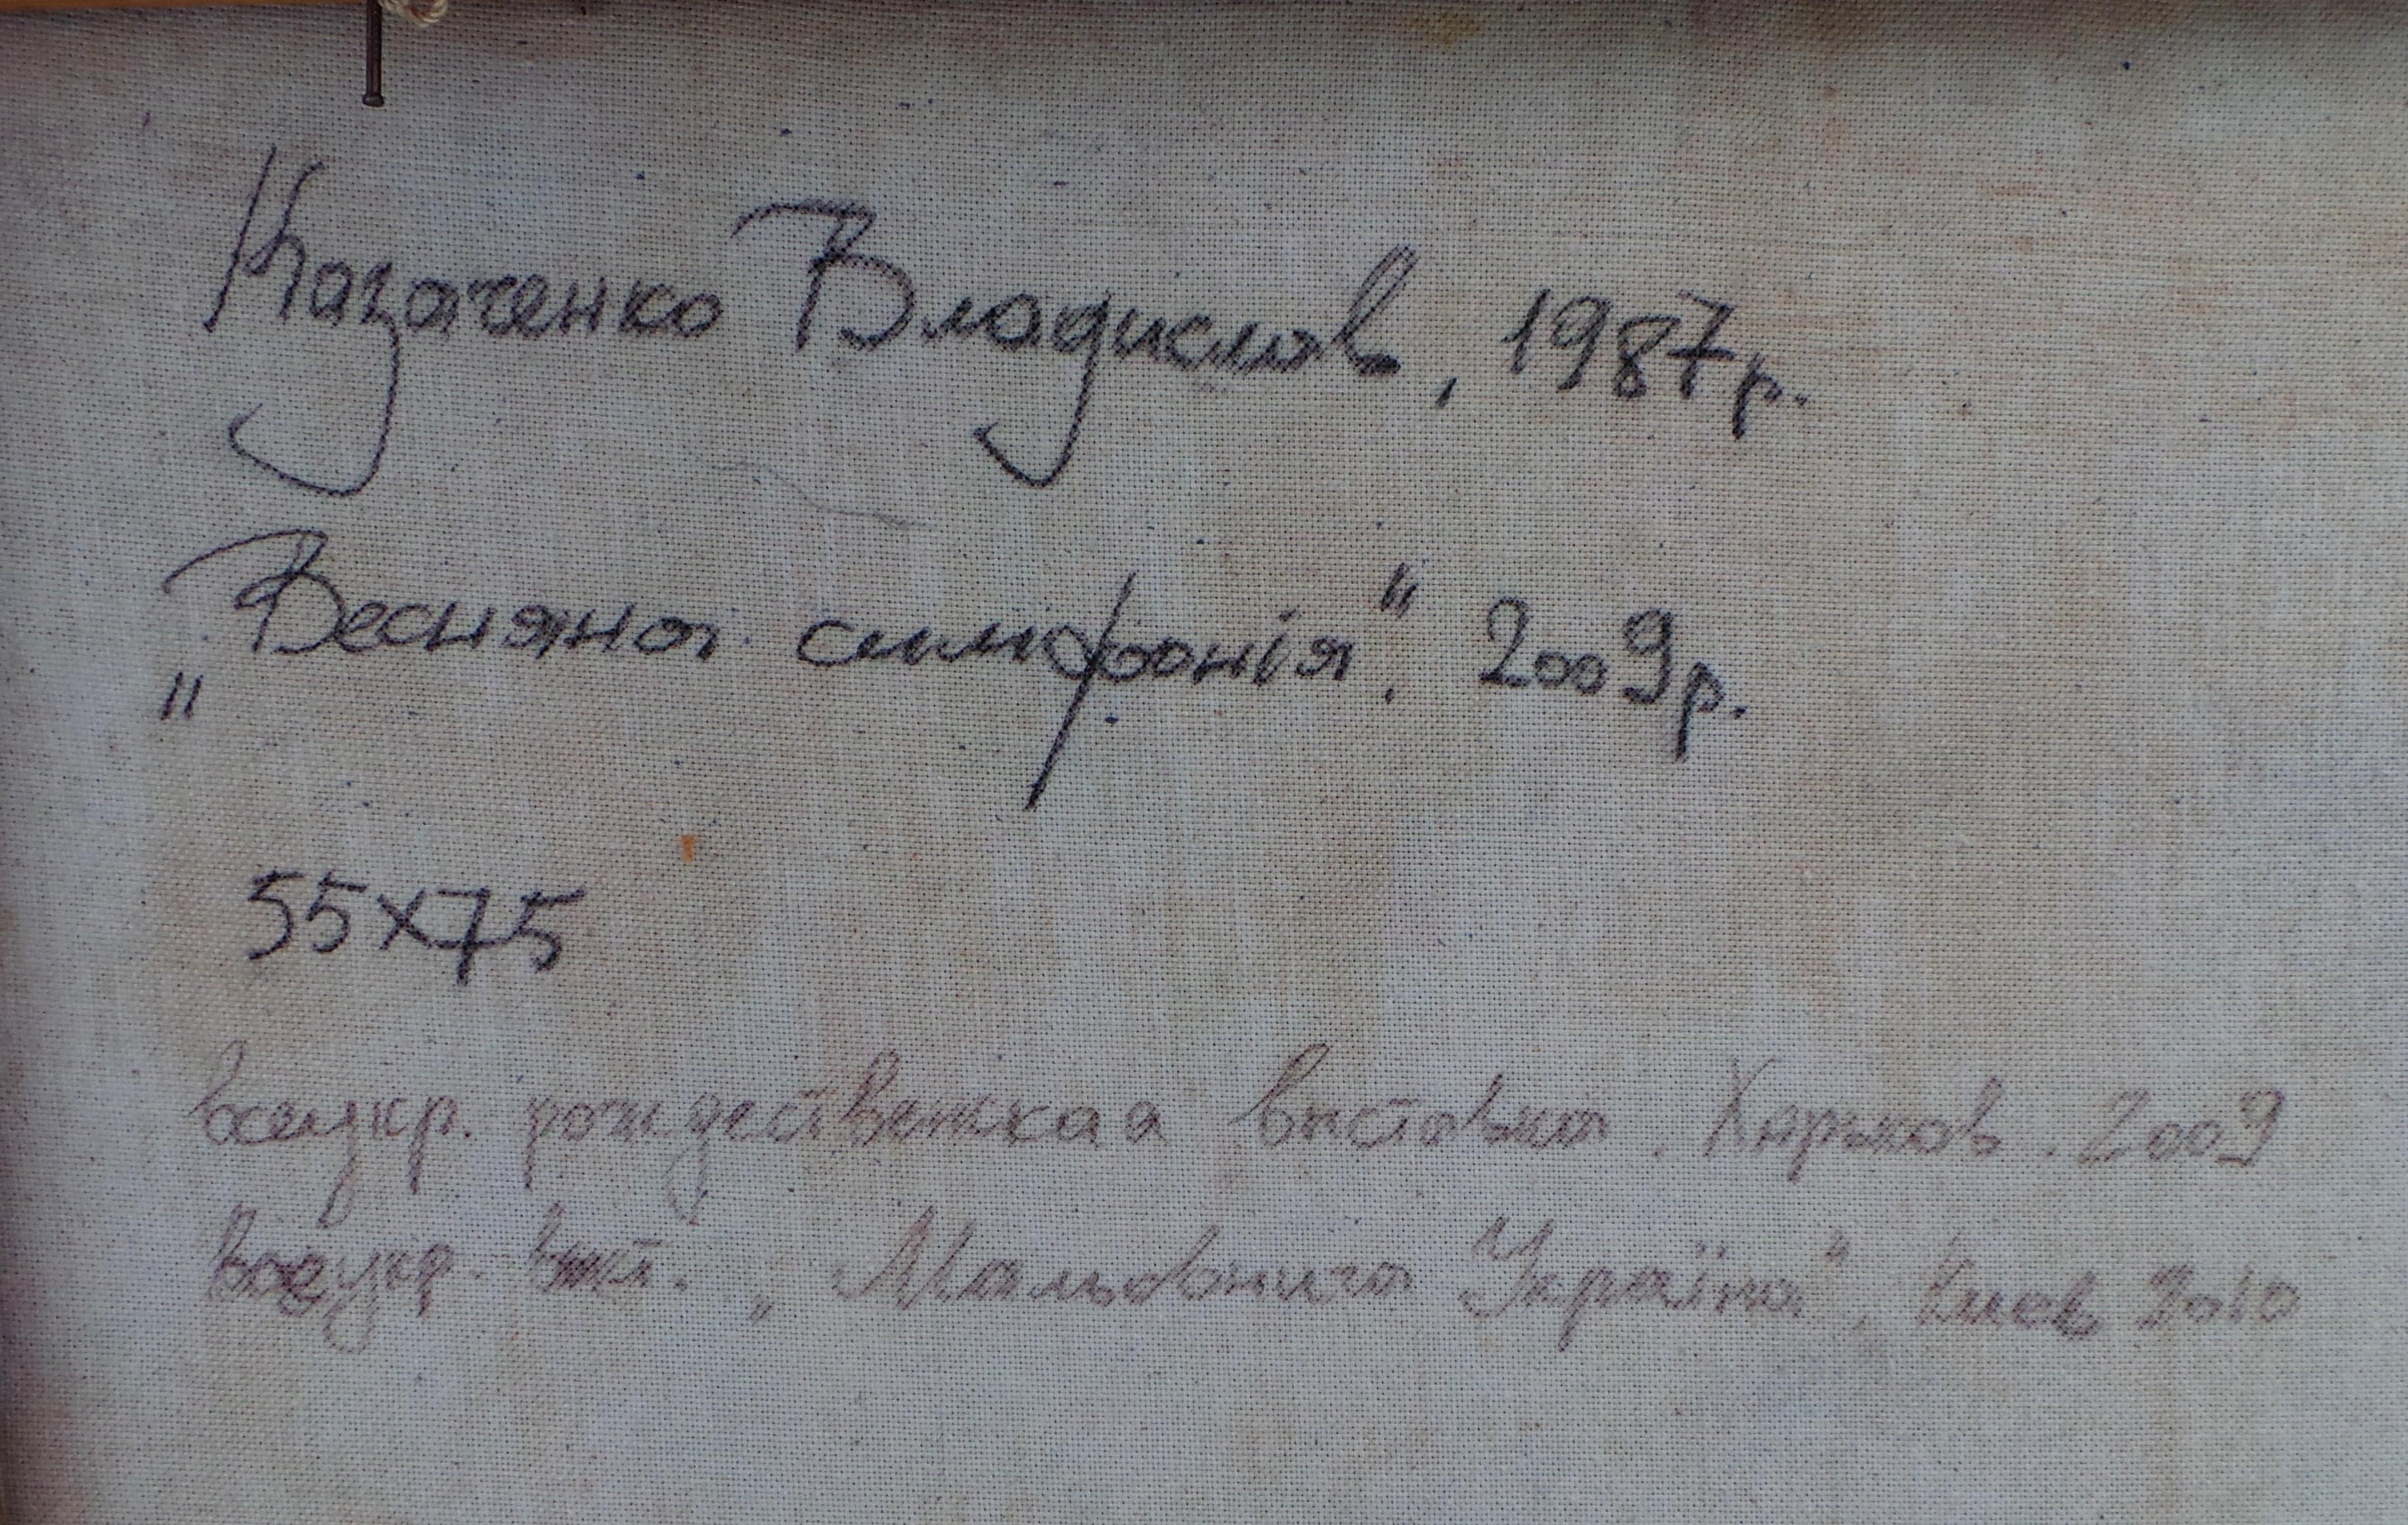 Казаченко Владислав, 1987р.
"Весняна симфонія". 2009р.
55х75
Всеукр. рождественская выставка. Харьков. 2009
Всеукр. выст. „Мальовнича Україна", Киев 2010